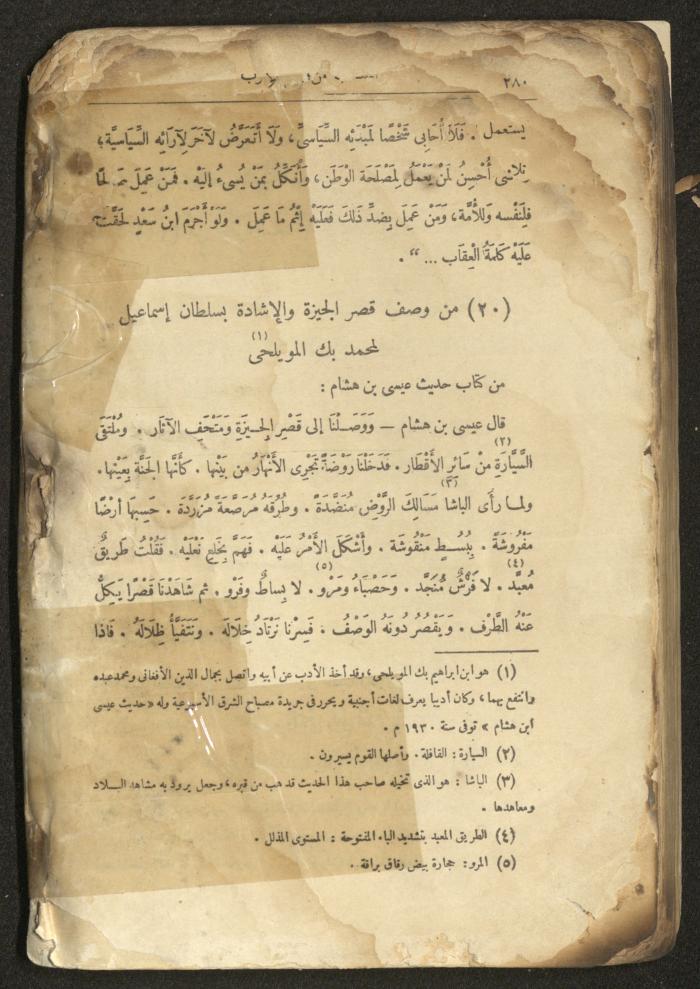 ٢٨٠
يستعمل . فَلَا أُحَابِى شَخْصًا لَمِبْدَئِه السِّيَاسىِّ، وَلَا أَتَعَرَّضُ لآخَرَ لِآرائِه السِّيَاسيَّة؛
أُحْسِنُ لَمَنْ يَعْمَلُ لِمَصْلَحَة الْوَطَن، وَأُنَكِّلُ بِمَنْ يُسىءُ إلَيْه . فَمَنْ عَمِلَ
فَلِنَفْسه وَللأُمَّة، وَمَنْ عَمِلَ بِضدِّ ذَلكَ فَعَلَيْه إثْمُ مَا عَمِلَ . وَلَوْ أَجْرَمَ ابنُ سَعْدٍ لَحَقَّتْ
عَلَيْه كَلمَةُ الْعِقَاب ... “ .
(٢٠) من وصف قصر الجيزة والإشادة بسلطان إسماعيل
لمحمد بك المويلحى (١)
من كتاب حديث عيسى بن هشام :
قال عيسى بن هشام — وَوَصَلْنَا إلى قَصْرِ الجِيزَةِ وَمَتْحَفِ الآثَار . ومُلْتَقَى
السَّيَّارَةِ (٢) مِنْ سَائرِ الأَقْطَار . فَدَخَلْنَا رَوْضَةً تَجْرِى الأَنْهَارُ من بَيْنهَا . كَأَنَّهَا الجَنَّة بِعَيْنهَا .
ولما رأَى الباشا (٣) مَسَالِكَ الرَّوْضِ مُنَضَّدَةً . وطُرُقَهُ مُرَصَّعَةً مُزَرَّدَة . حَسِبَهَا أرْضًا
مَفْرُوشَةً . بِبُسُطٍ مَنْقُوشَة . وأَشْكَلَ الأَمْرُ عَلَيْه . فَهَمَّ بِخَلْع نَعْلَيْه . فَقُلْتُ طَريقٌ
مُعبَّد (٤) . لا فَرْشٌ مُنَجَّد . وَحَصْبَاءُ وَمَرْو (٥) . لا بِساطٌ وفَرْو . ثم شَاهَدْنَا قَصْرًا يَكِلُّ
عَنْهُ الطَّرْف . وَيَقْصُرُ دُونَهُ الوَصْفُ . فَسِرْنَا نَرْتَادُ خِلَالَهُ . وَنَتَفَيَّأُ ظِلَالَهُ . فَاذا
(١) هو ابن ابراهيم بك المويلحى، وقد أخذ الأدب عن أبيه واتصل بجمال الدين الأفغانى ومحمد عبده
وانتفع بهما، وكان أديبا يعرف لغات أجنبية ويحرر فى جريدة مصباح الشرق الأسبوعية وله «حديث عيسى
ابن هشام» توفى سنة ١٩٣٠ م .
(٢) السيارة : القافلة . وأصلها القوم يسيرون .
(٣) الباشا : هو الذى تخيله صاحب هذا الحديث قد هب من قبره، وجعل يرود به مشاهد البلاد
ومعاهدها .
(٤) الطريق المعبد بتشديد الباء المفتوحة : المستوى المذلل .
(٥) المرو : حجارة بيض رقاق براقة .